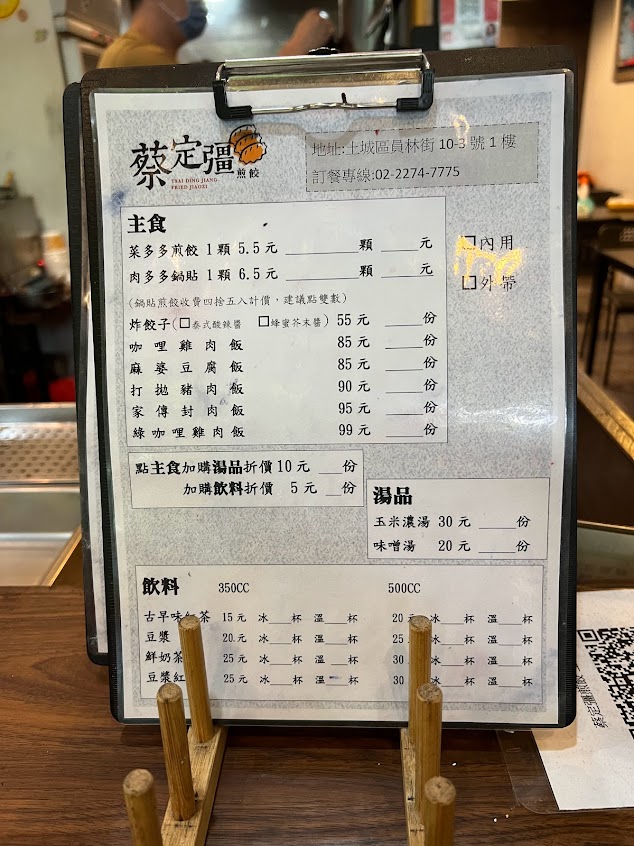 蔡定彊
煎餃
TSAI DING JIANG
FRIED JIAOZI
地址:土城區員林街 10-3 號 1 樓
訂餐專線:02-2274-7775
主食
菜多多煎餃 1 顆 5.5 元 ________顆 ____元
肉多多鍋貼 1 顆 6.5 元 ________顆 ____元
(鍋貼煎餃收費四捨五八計價，建議點雙數)
炸餃子(□泰式酸辣醬 □蜂蜜芥末醬) 55 元 ____份
咖哩雞肉飯 85 元 ____份
麻婆豆腐飯 85 元 ____份
打拋豬肉飯 90 元 ____份
家傳封肉飯 95 元 ____份
綠咖哩雞肉飯 99 元 ____份
□內用
□外帶
點主食加購湯品折價 10 元 ___份
加購飲料折價 5 元 ___份
湯品
玉米濃湯 30 元 ____份
味噌湯 20 元 ____份
飲料 350CC 500CC
古早味紅茶 15 元 冰___杯 溫___杯 20 冰___杯 溫___杯
豆漿 20 元 冰___杯 溫___杯 25 冰___杯 溫___杯
鮮奶茶 25 元 冰___杯 溫___杯 30 冰___杯 溫___杯
豆漿紅 25 元 冰___杯 溫___杯 30 冰___杯 溫___杯
蔡定彊煎餃